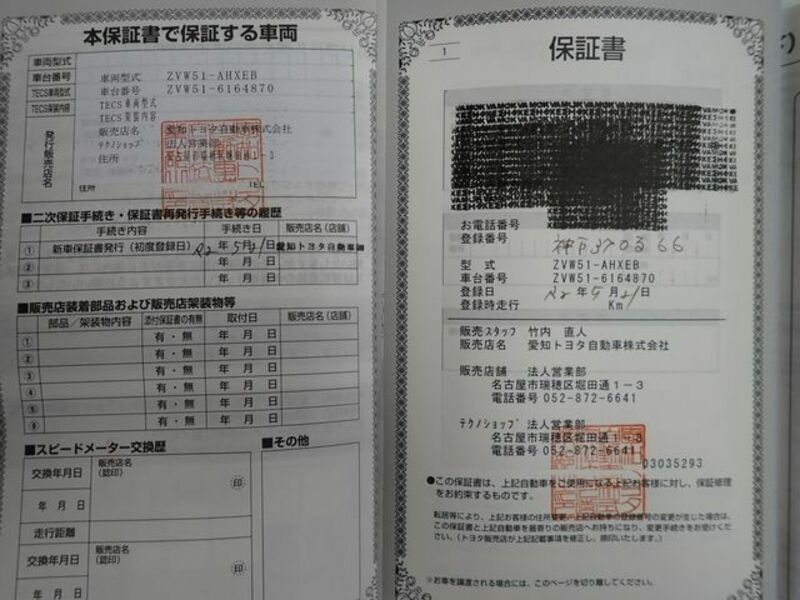 本保証書で保証する車両
車両型式
車台番号
TECS車両型式
TECS架装内容
発行販売店名
車両型式 ZVW51-AHXEB
車台番号 ZVW51-6164870
TECS車両型式
TECS架装内容
販売店名 愛知トヨタ自動車株式会社
テクノショップ 法人営業部
住所
住所 TEL
■二次保証手続き・保証書再発行手続き等の履歴
手続き内容 手続き日 販売店名(店舗)
① 新車保証書発行(初度登録日) R2年5月21日 愛知トヨタ自動車㈱
② 年 月 日
③ 年 月 日
■販売店装着部品および販売店架装物等
部品/架装物内容 添付保証書の有無 取付日 販売店名(店舗)
① 有・無 年 月 日
② 有・無 年 月 日
③ 有・無 年 月 日
④ 有・無 年 月 日
⑤ 有・無 年 月 日
⑥ 有・無 年 月 日
■スピードメーター交換歴
■その他
交換年月日 販売店名
(認印) 印
年 月 日
走行距離
交換年月日 販売店名
(認印) 印
年 月 日
1
保証書
お電話番号
登録番号
型 式 ZVW51-AHXEB
車台番号 ZVW51-6164870
登録日 R2年5月21日
登録時走行 Km
販売スタッフ 竹内 直人
販売店名 愛知トヨタ自動車株式会社
販売店舗 法人営業部
名古屋市瑞穂区堀田通1-3
電話番号 052-872-6641
テクノショップ 法人営業部
名古屋市瑞穂区堀田通1-3
電話番号 052-872-6641
03035293
●この保証書は、上記自動車をご使用になる上記お客様に対し、保証修理
をお約束するものです。
転居等により、上記お客様の住所変更、上記自動車の登録番号の変更が生じた場合は、
この保証書と上記自動車を最寄りの販売店へお持ちになり、変更手続きをお受けくださ
い。(トヨタ販売店が上記記載事項を修正し、捺印いたします。)
※お車を譲渡される場合には、このページを切り離してください。